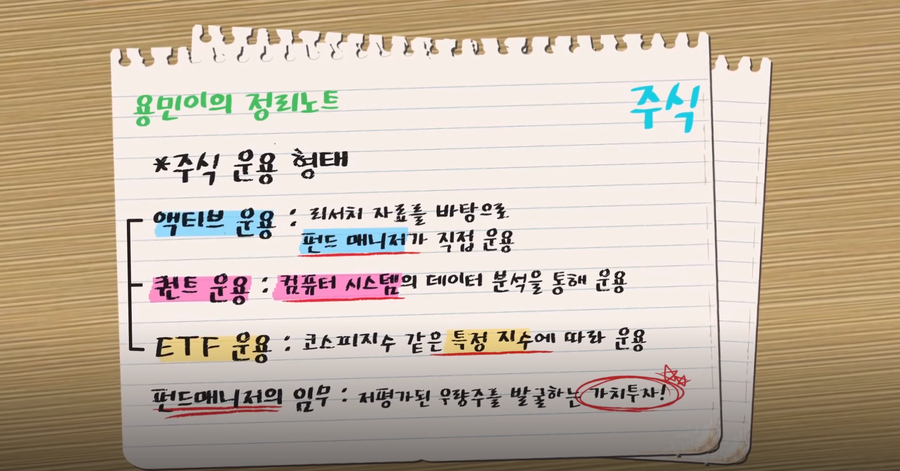 용민이의 정리노트
주식
*주식 운용 형태
액티브 운용 : 리서치 자료를 바탕으로
펀드 매니저가 직접 운용
퀀트 운용 : 컴퓨터 시스템의 데이터 분석을 통해 운용
ETF 운용 : 코스피지수 같은 특정 지수에 따라 운용
펀드매니저의 임무 : 저평가된 우량주를 발굴하는 가치투자!